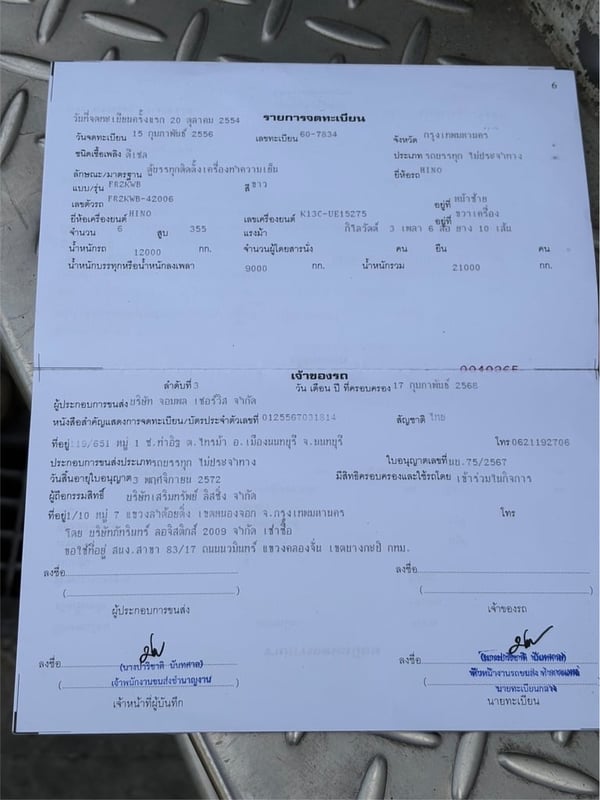 6
วันที่จดทะเบียนครั้งแรก 20 ตุลาคม 2554 รายการจดทะเบียน
วันจดทะเบียน 15 กุมภาพันธ์ 2556 เลขทะเบียน 60-7834 จังหวัด กรุงเทพมหานคร
ชนิดเชื้อเพลิง ดีเซล ประเภท รถบรรทุก ไม่ประจำทาง
ลักษณะ/มาตรฐาน ตู้บรรทุกติดตั้งเครื่องทำความเย็น ยี่ห้อรถ HINO
แบบ/รุ่น FR2KWB สี ขาว
เลขตัวรถ FR2KWB-42006 อยู่ที่ หน้าซ้าย
ยี่ห้อเครื่องยนต์ HINO เลขเครื่องยนต์ K13C-UE15275 อยู่ที่ ขวาเครื่อง
จำนวน 6 สูบ 355 แรงม้า กิโลวัตต์ 3 เพลา 6 ล้อ ยาง 10 เส้น
น้ำหนักรถ 12000 กก. จำนวนผู้โดยสารนั่ง คน ยืน คน
น้ำหนักบรรทุกหรือน้ำหนักลงเพลา 9000 กก. น้ำหนักรวม 21000 กก.
เจ้าของรถ
ลำดับที่ 3 วัน เดือน ปี ที่ครอบครอง 17 กุมภาพันธ์ 2568
ผู้ประกอบการขนส่ง บริษัท จอมพล เซอร์วิส จำกัด
หนังสือสำคัญแสดงการจดทะเบียน/บัตรประจำตัวเลขที่ 0125567031814 สัญชาติ ไทย
ที่อยู่ 119/651 หมู่ 1 ซ.ท่าอิฐ ต.ไทรม้า อ.เมืองนนทบุรี จ.นนทบุรี โทร 0621192706
ประกอบการขนส่งประเภท รถบรรทุก ไม่ประจำทาง ใบอนุญาตเลขที่ นบ.75/2567
วันสิ้นอายุใบอนุญาต 3 พฤศจิกายน 2572 มีสิทธิครอบครองและใช้รถโดย เข้าร่วมในกิจการ
ผู้ถือกรรมสิทธิ์ บริษัทเสริมทรัพย์ ลิสซิ่ง จำกัด
ที่อยู่ 1/10 หมู่ 7 แขวงลำต้อยติ่ง เขตหนองจอก จ.กรุงเทพมหานคร โทร
โดย บริษัทภัทรินทร์ ลอจิสติกส์ 2009 จำกัด เช่าซื้อ
ขอใช้ที่อยู่ สนง.สาขา 83/17 ถนนนวมินทร์ แขวงคลองจั่น เขตบางกะปิ กทม.
ลงชื่อ ลงชื่อ
( ) ( )
ผู้ประกอบการขนส่ง เจ้าของรถ
ลงชื่อ ลงชื่อ
(นางปาริชาติ นันทศาล) (นางปาริชาติ นันทศาล)
( เจ้าพนักงานขนส่งชำนาญงาน ) ( หัวหน้างานรถขนส่ง
นายทะเบียนกลาง
เจ้าหน้าที่ผู้บันทึก นายทะเบียน